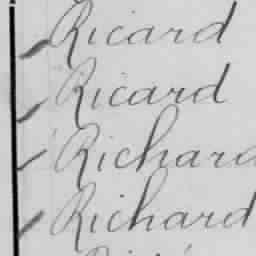 Ricard
Ricard
Richard
Richard